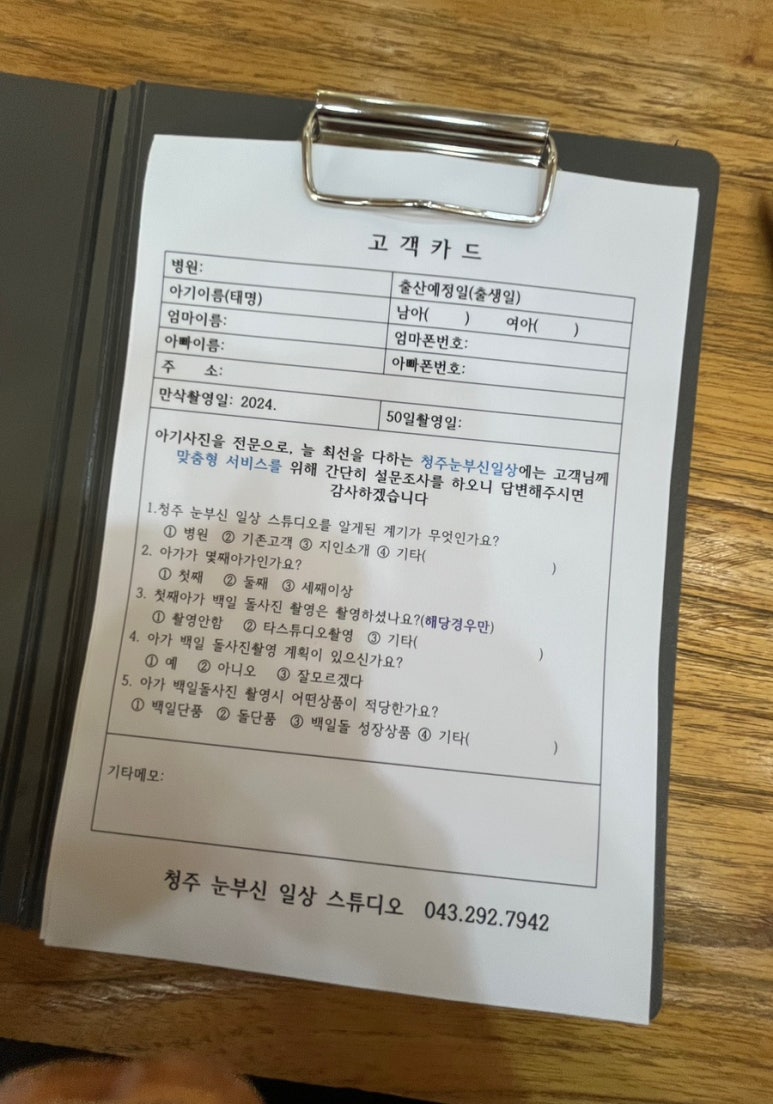 고 객 카 드
병원:
아기이름(태명) 출산예정일(출생일)
엄마이름: 남아( ) 여아( )
아빠이름: 엄마폰번호:
주 소: 아빠폰번호:
만삭촬영일: 2024. 50일촬영일:
아기사진을 전문으로, 늘 최선을 다하는 청주눈부신일상에는 고객님께
맞춤형 서비스를 위해 간단히 설문조사를 하오니 답변해주시면
감사하겠습니다
1.청주 눈부신 일상 스튜디오를 알게된 계기가 무엇인가요?
① 병원 ② 기존고객 ③ 지인소개 ④ 기타( )
2. 아가가 몇째아가인가요?
① 첫째 ② 둘째 ③ 세째이상
3. 첫째아가 백일 돌사진 촬영은 촬영하셨나요?(해당경우만)
① 촬영안함 ② 타스튜디오촬영 ③ 기타( )
4. 아가 백일 돌사진촬영 계획이 있으신가요?
① 예 ② 아니오 ③ 잘모르겠다
5. 아가 백일돌사진 촬영시 어떤상품이 적당한가요?
① 백일단품 ② 돌단품 ③ 백일돌 성장상품 ④ 기타( )
기타메모:
청주 눈부신 일상 스튜디오 043.292.7942